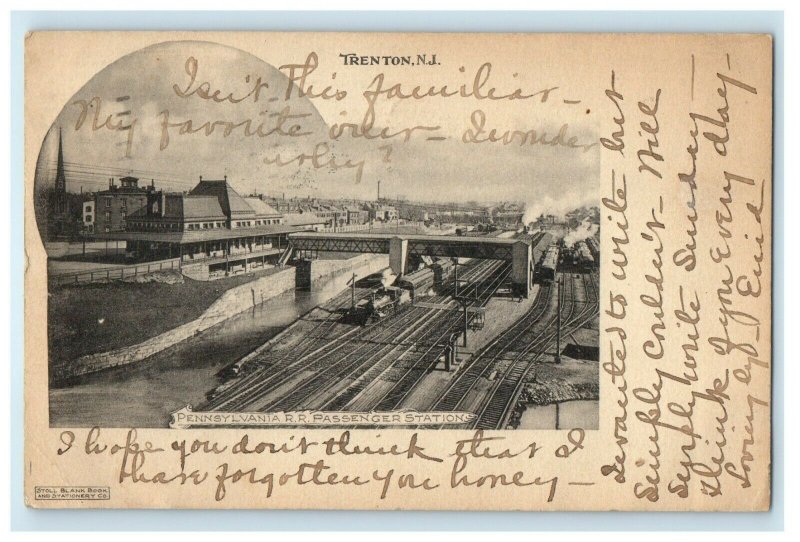 TRENTON, N.J.
Isn't this familiar-
My favorite river- I wonder
why?
PENNSYLVANIA R.R. PASSENGER STATION.
I hope you don't think that I
have forgotten you honey-
I wanted to write but
simply couldn't- Will
write Sunday-
think of you every day-
Lovingly- Enid
STOLL BLANK BOOK
AND STATIONERY CO.